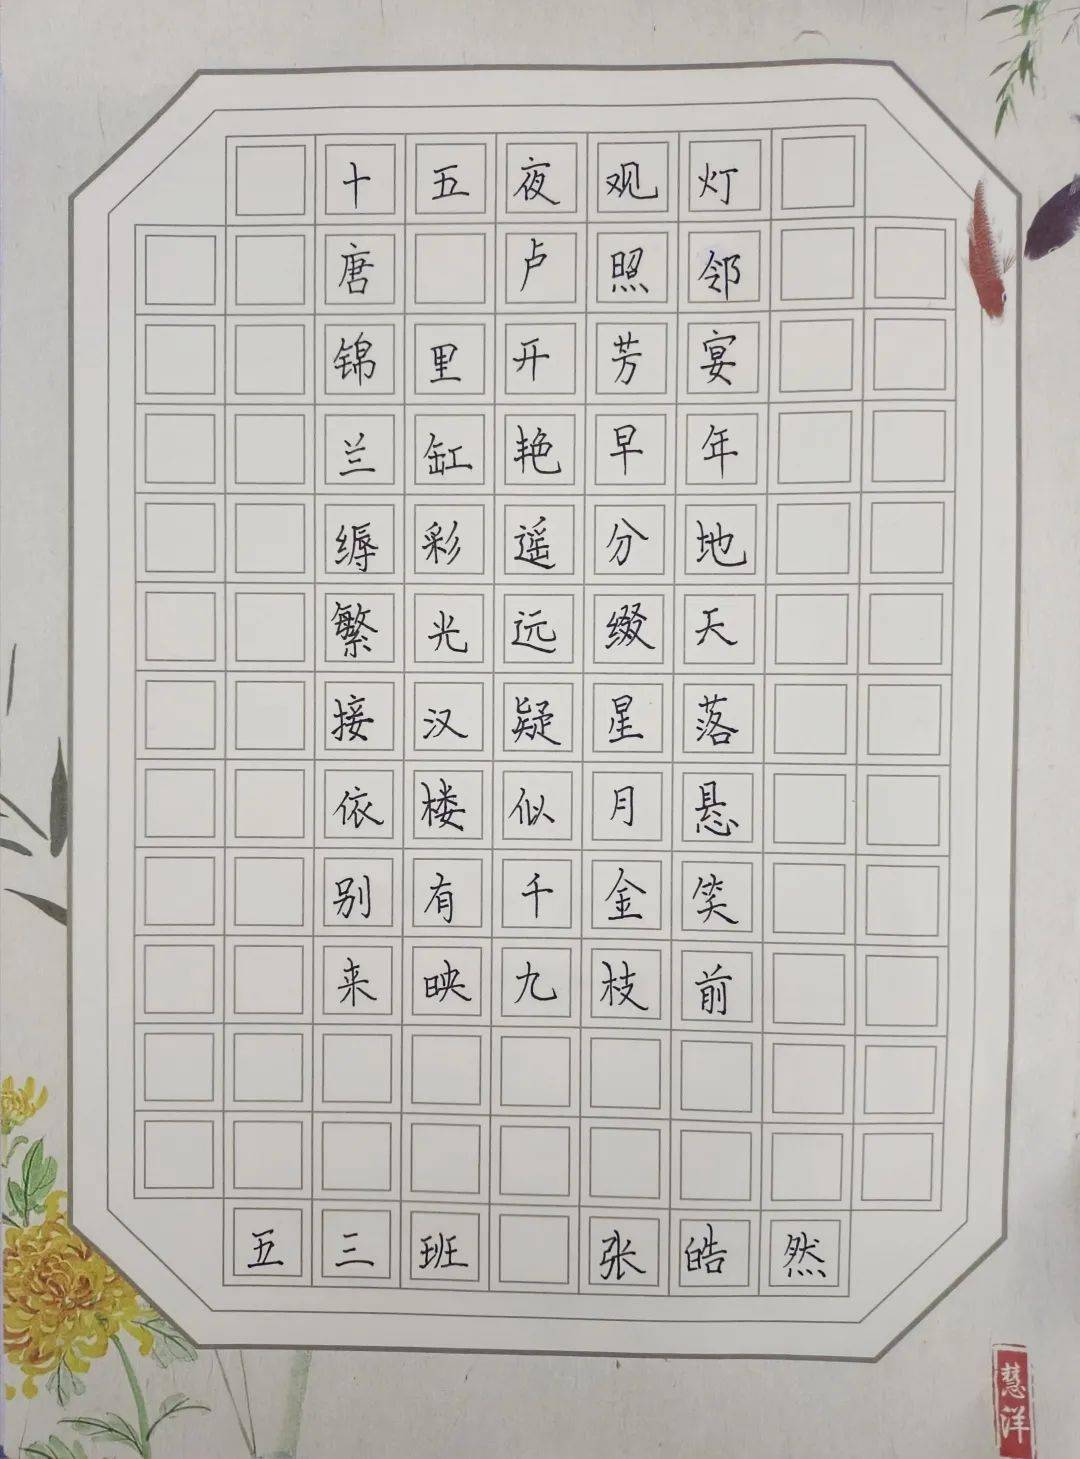 十五夜观灯
唐 卢照邻
锦里开芳宴
兰缸艳早年
缛彩遥分地
繁光远缀天
接汉疑星落
依楼似月悬
别有千金笑
来映九枝前
五三班 张皓然
慧洋